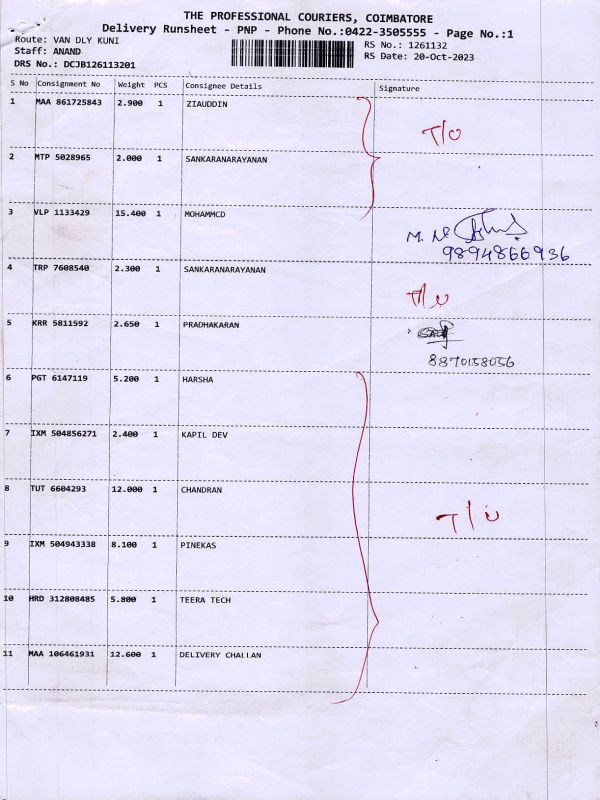 THE PROFESSIONAL COURIERS, COIMBATORE
Delivery Runsheet - PNP - Phone No.:0422-3505555 - Page No.:1
Route: VAN DLY KUNI
RS No.: 1261132
Staff: ANAND
RS Date: 20-Oct-2023
DRS No.: DCJB126113201
S No Consignment No Weight PCS Consignee Details Signature
1 MAA 861725843 2.900 1 ZIAUDDIN
T/U
2 MTP 5028965 2.000 1 SANKARANARAYANAN
3 VLP 1133429 15.400 1 MOHAMMCD
M. 
9894866936
4 TRP 7608540 2.300 1 SANKARANARAYANAN
T/U
5 KRR 5811592 2.650 1 PRADHAKARAN
8870158056
6 PGT 6147119 5.200 1 HARSHA
7 IXM 504856271 2.400 1 KAPIL DEV
8 TUT 6604293 12.000 1 CHANDRAN
T/U
9 IXM 504943338 8.100 1 PINEKAS
10 HRD 312808485 5.800 1 TEERA TECH
11 MAA 106461931 12.600 1 DELIVERY CHALLAN